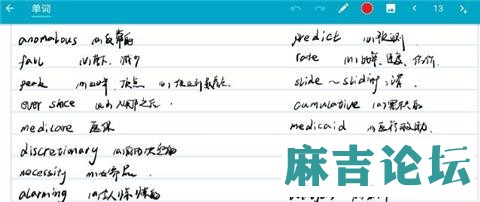 单词
13
anomalous (a)反常的
fall (v)下降, 减少
peak (n)山峰, 顶点
ever since
medicare 医保
discretionary (a)自由决定的
necessity (n)必需品
alarming (a)令人惊慌的
predict (v)预测
rate (n)比率, 速度, 价格
slide ~ sliding 滑
cumulative (a)累积的
medicaid (n)医疗救助.
麻吉论坛